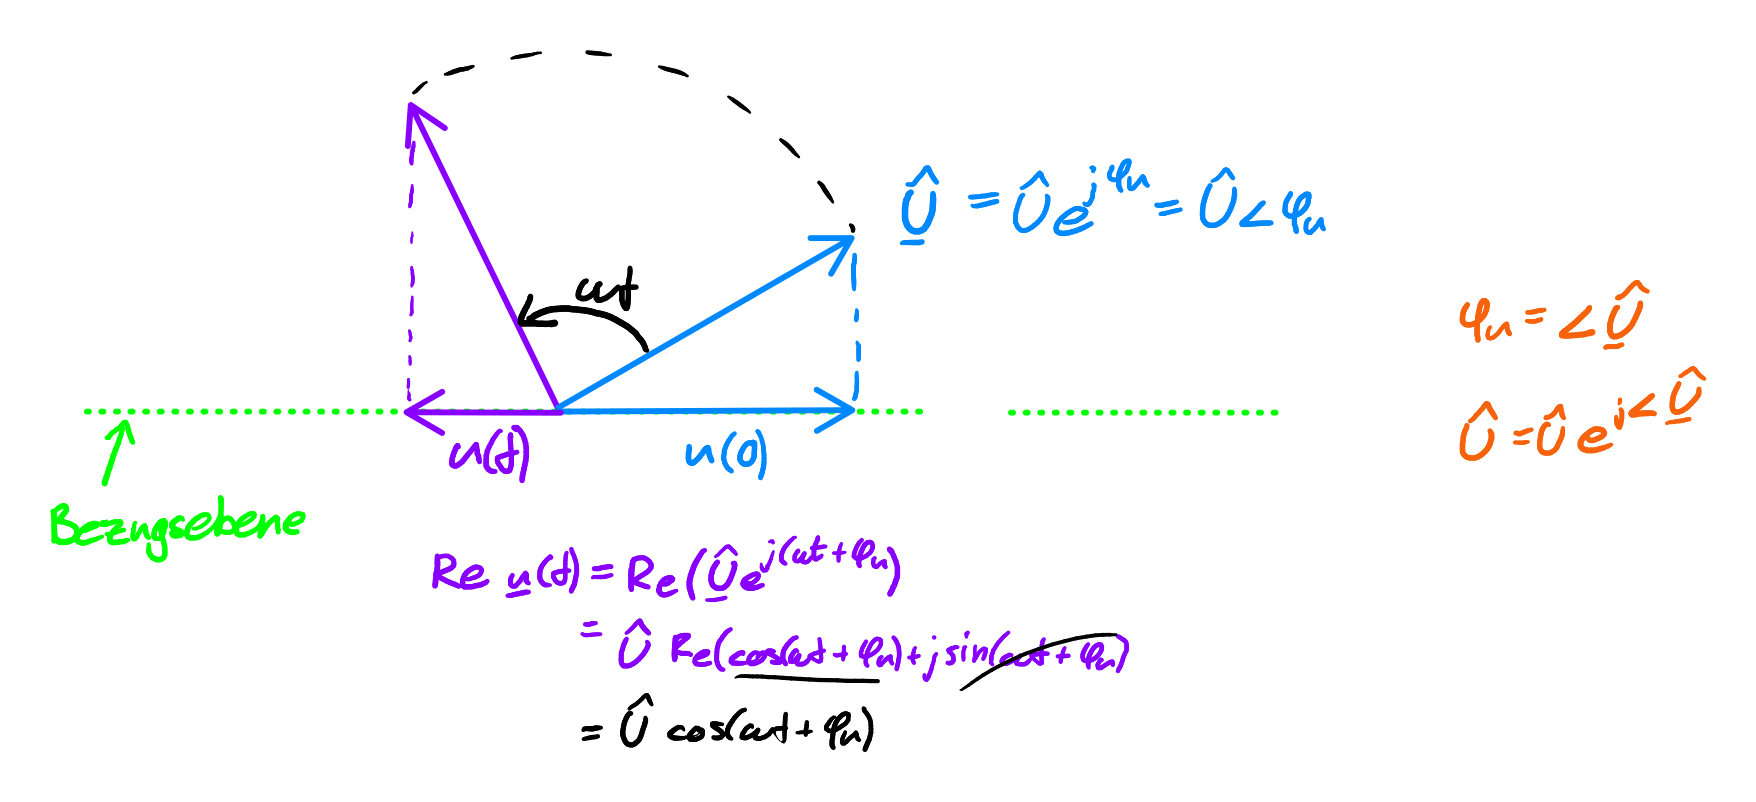 ωt
Û̲ = Û e^{jφu} = Û∠φu
φu = ∠Û̲
Û = Û e^{j∠Û̲}
u(t)
u(0)
Bezugsebene
Re u̲(t) = Re(Û̲ e^{j(ωt+φu)})
= Û Re(cos(ωt+φu)+j sin(ωt+φu))
= Û cos(ωt+φu)